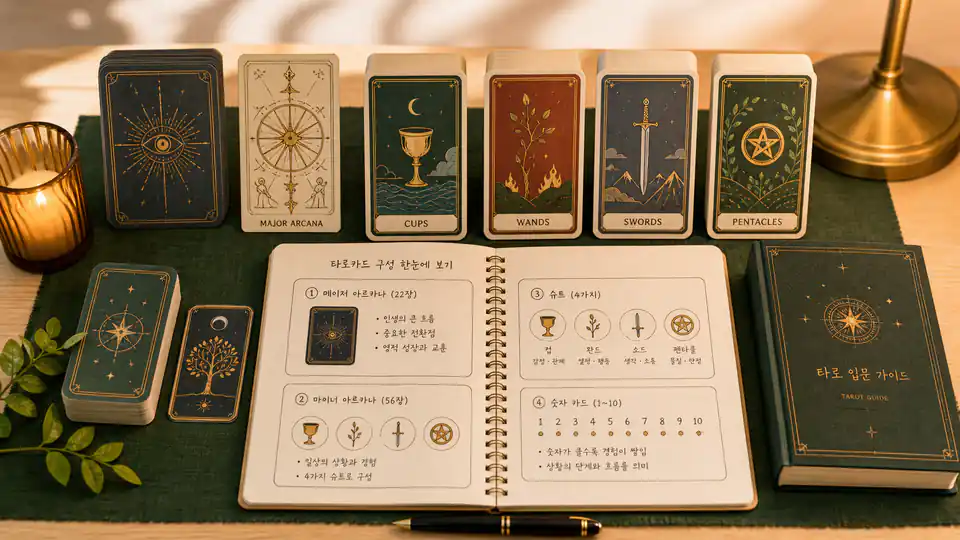 MAJOR ARCANA
CUPS
WANDS
SWORDS
PENTACLES
타로카드 구성 한눈에 보기
① 메이저 아르카나 (22장)
• 인생의 큰 흐름
• 중요한 전환점
• 영적 성장과 교훈
② 마이너 아르카나 (56장)
• 일상의 상황과 경험
• 4가지 슈트로 구성
③ 슈트 (4가지)
컵 완드 소드 펜타클
감정·관계 열정·행동 생각·소통 물질·안정
④ 숫자 카드 (1~10)
1 2 3 4 5 6 7 8 9 10
• 숫자가 클수록 경험이 쌓임
• 상황의 단계와 흐름을 의미
타로 입문 가이드
TAROT GUIDE